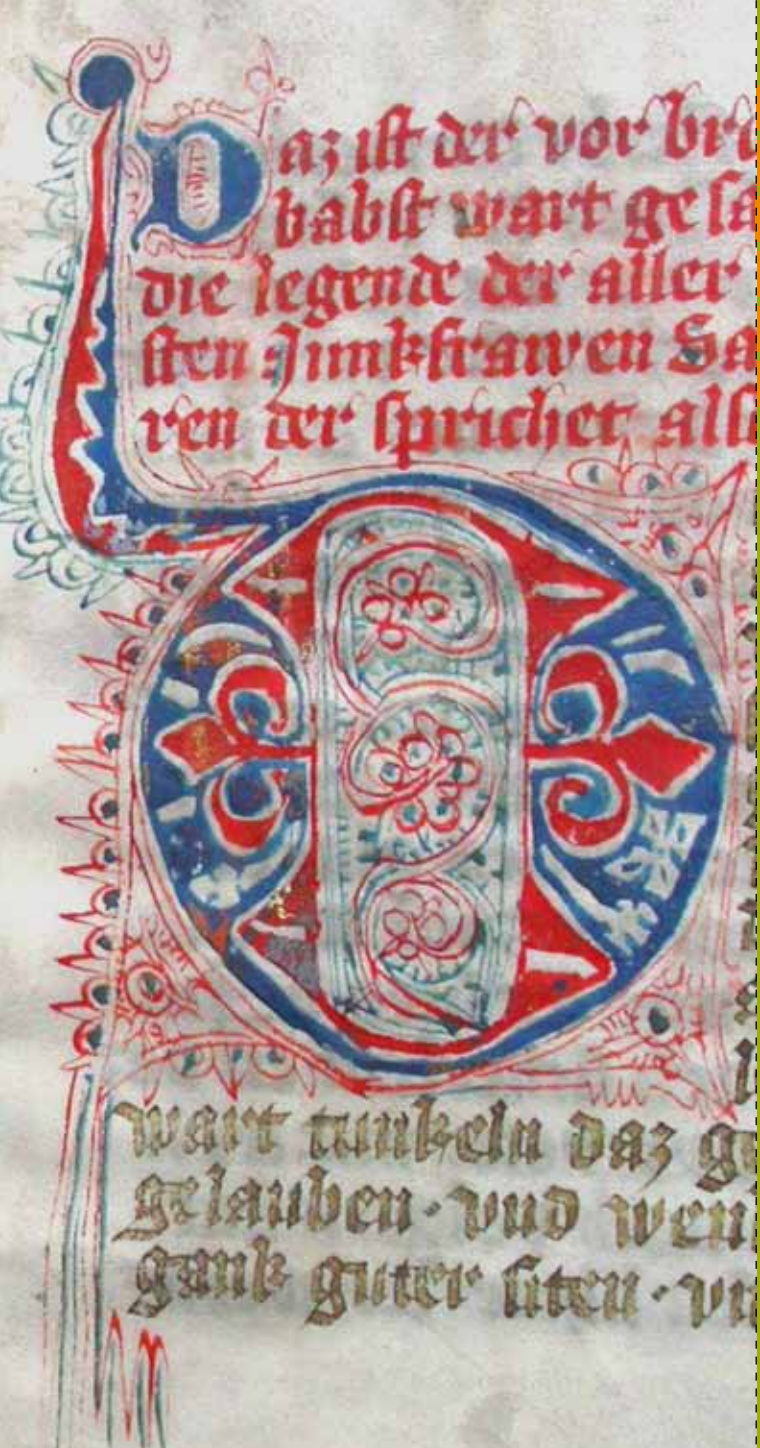 Daz ist der vor bri
babst wart gesa
die legende der aller
sten Junkfrawen Sa
ren der sprichet als
D
wart tunkeln daz ge
gelauben · vnd wen
gank guter siten · vn